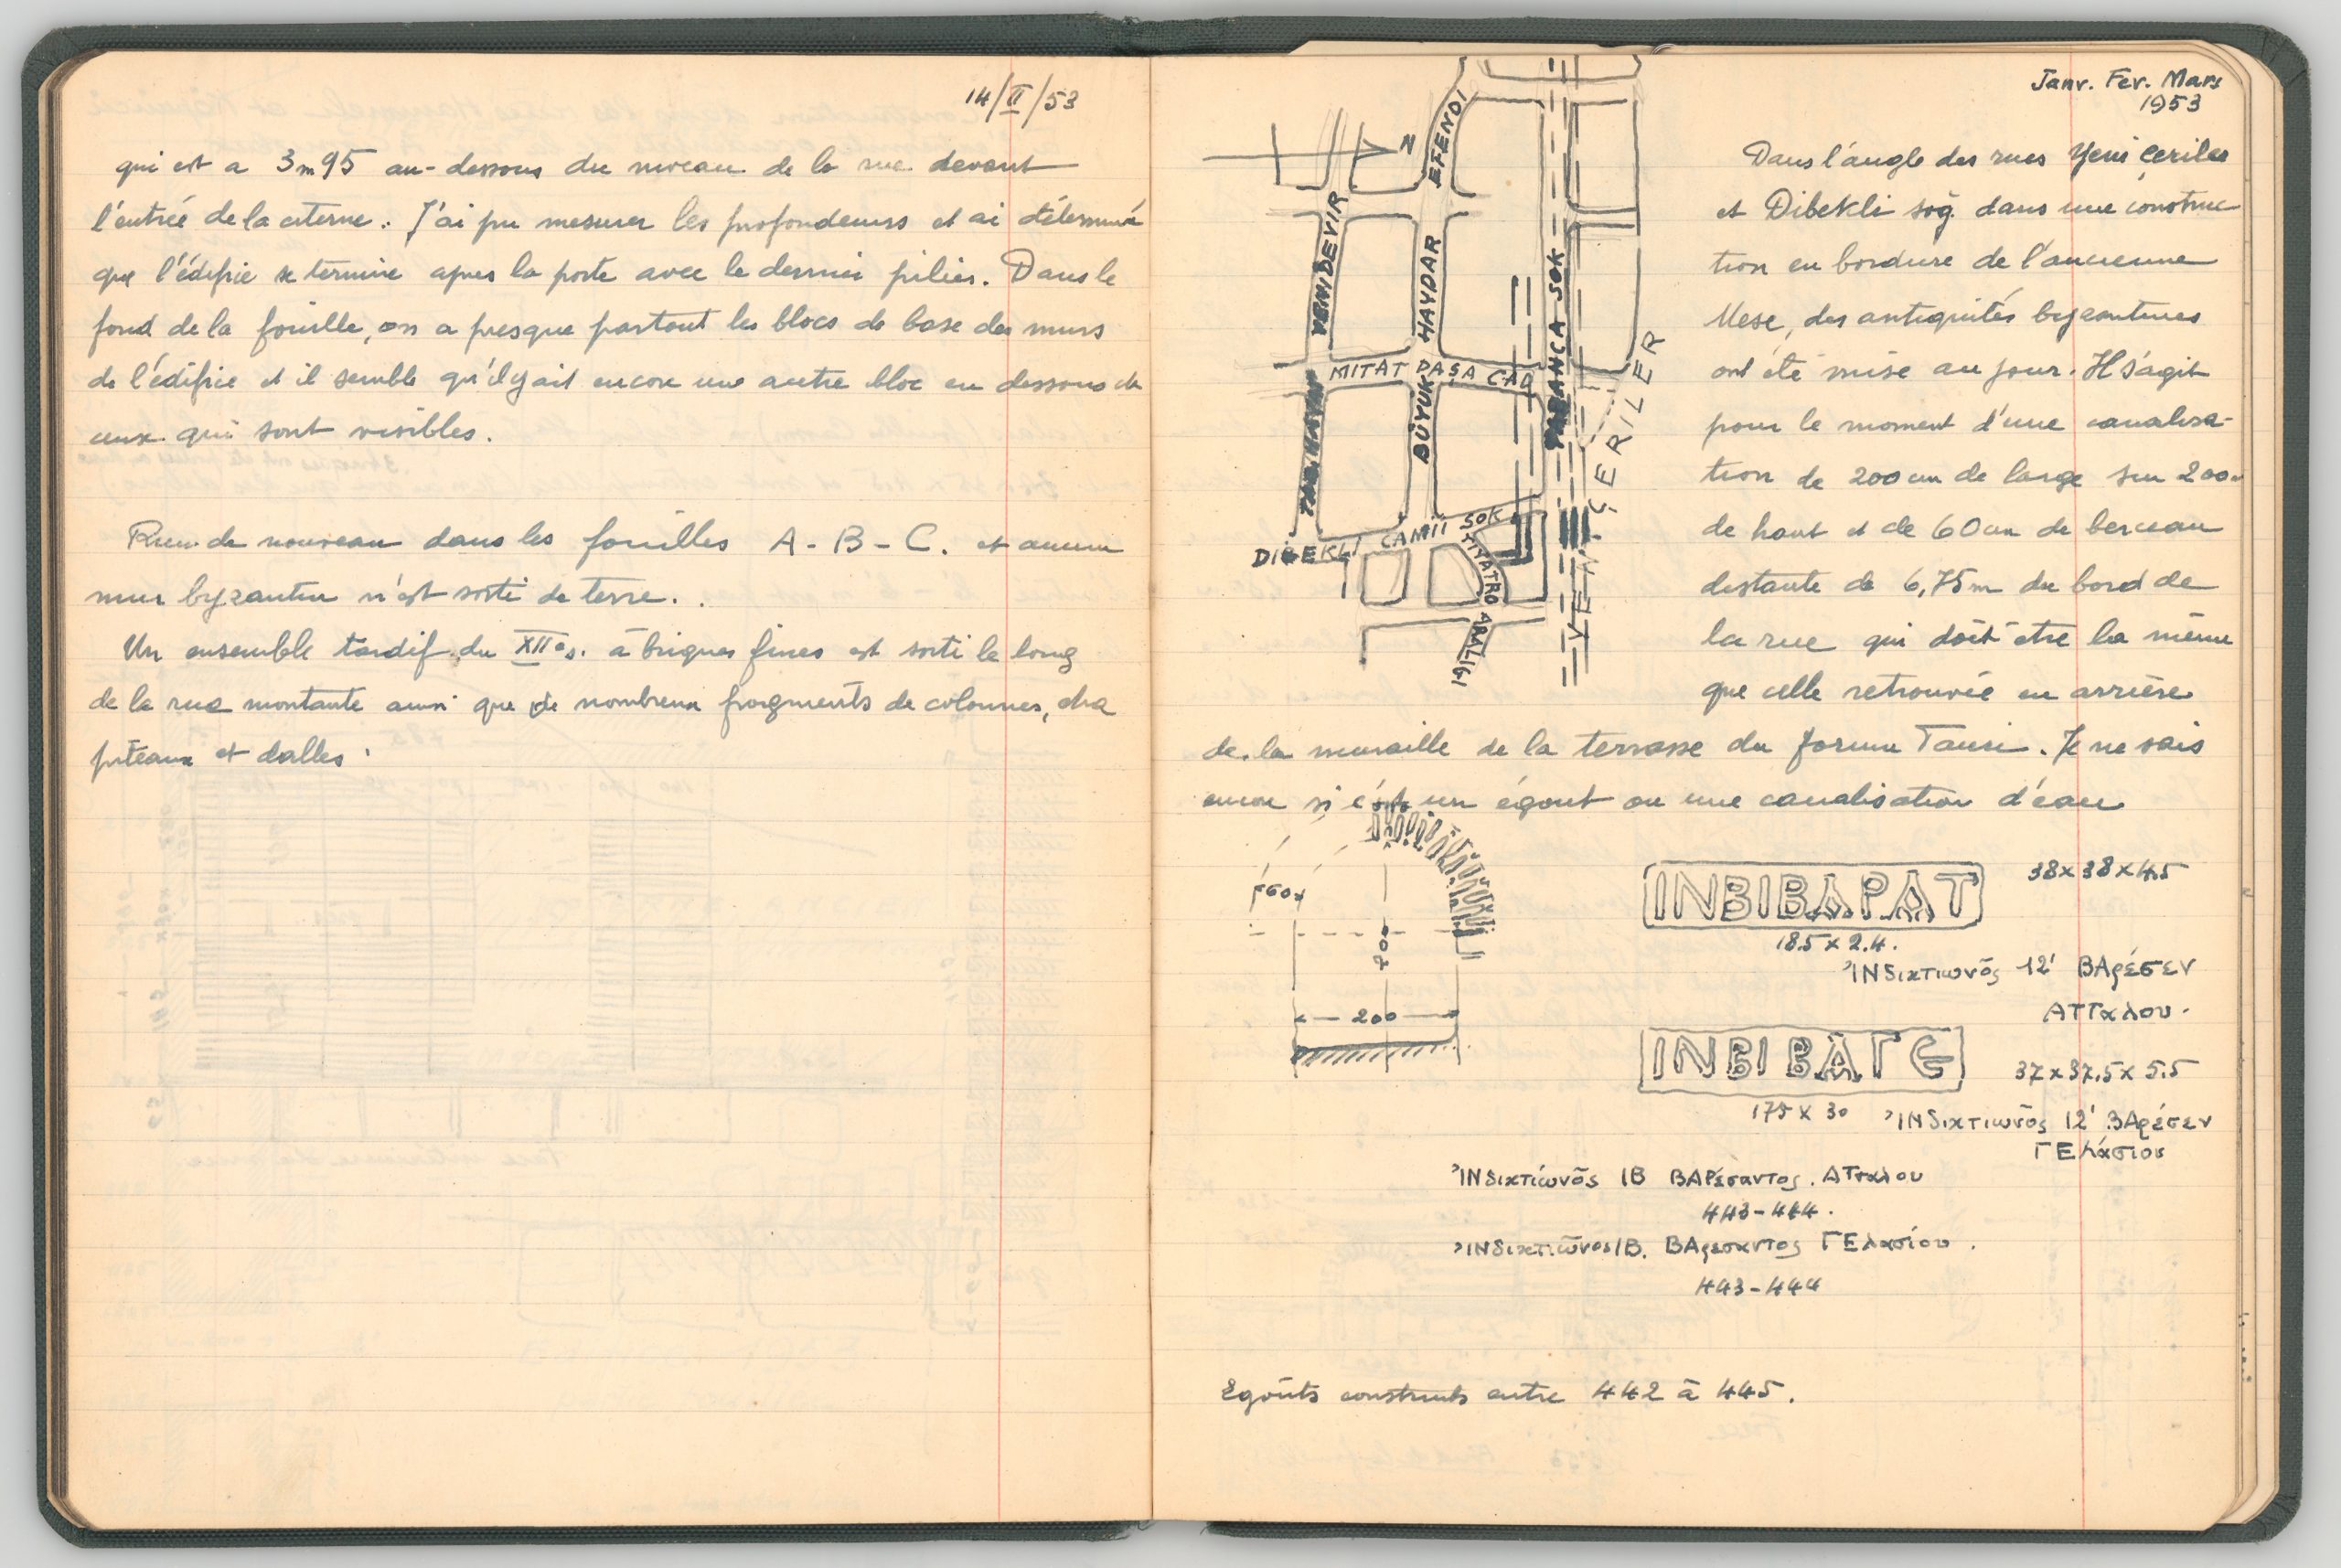 14/II/53
qui est a 3m95 au-dessous du niveau de la rue devant
l'entrée de la citerne. J'ai pu mesurer les profondeurs et ai déterminé
que l'édifice se termine apres la porte avec le dernier pilier. Dans le
fond de la fouille, on a presque partout les blocs de base des murs
de l'édifice et il semble qu'il y ait encore une autre bloc en dessous de
ceux qui sont visibles.
Rien de nouveau dans les fouilles A-B-C. et aucun
mur byzantin n'est sorti de terre.
Un ensemble tardif du XIIe s. à briques fines est sorti le long
de la rue montante ainsi que de nombreux fragments de colonnes, cha
piteaux et dalles.
Janv. Fev. Mars
1953
Dans l'angle des rues Yeni Çeriler
et Dibekli sog. dans une construc
tion en bordure de l'ancienne
Mese, des antiquités byzantines
ont été mise au jour. Il s'agit
pour le moment d'une canalisa-
tion de 200 cm de large sur 200
de haut et de 60 cm de berceau
distante de 6,75m du bord de
la rue qui doit être la même
que celle retrouvée en arrière
de la muraille de la terrasse du forum Tauri. Je ne sais
encore si c'est un égout ou une canalisation d'eau
N
EFENDI
YENIDEVIR
HAYDAR
BÜYUK
MITAT PAŞA CAD
PABAHCA SOK
YENI ÇERILER
DIBEKLI CAMII SOK
TIYATRO ARALIGI
60
200
200
INBIBAPAT
38x38x4.5
18.5 x 2.4.
ἸΝδικτιωνος 12' ΒΑρέσεν
ΑΤΤαλου.
INBIBAΓE
37x37.5x5.5
175 x 30
ἸΝδικτιωνος 12' ΒΑρέσεν
ΓΕλάσιου
ἸΝδικτιωνος ΙΒ ΒΑΡέσαντος. ΑΤταλου
443-444.
ἸΝδικτιωνος ΙΒ. ΒΑρεσαντος ΓΕλασίου.
443-444
Egoûts construits entre 442 à 445.